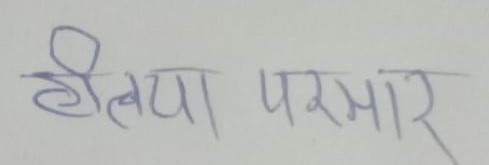 हीतया परमार